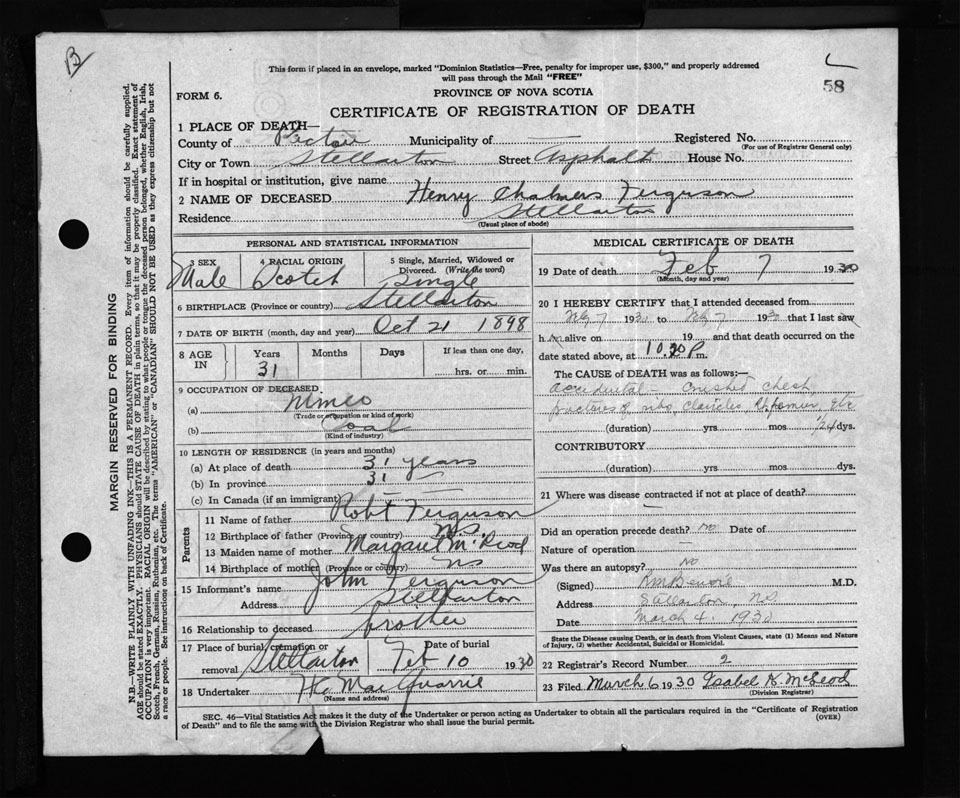 B
58
This form if placed in an envelope, marked "Dominion Statistics—Free, penalty for improper use, $300," and properly addressed
will pass through the Mail "FREE"
FORM 6.
PROVINCE OF NOVA SCOTIA
CERTIFICATE OF REGISTRATION OF DEATH
1 PLACE OF DEATH—
County of Pictou Municipality of — Registered No.
(For use of Registrar General only)
City or Town Stellarton Street Asphalt House No.
If in hospital or institution, give name
2 NAME OF DECEASED Henry Chalmers Ferguson
Residence Stellarton
(Usual place of abode)
PERSONAL AND STATISTICAL INFORMATION
3 SEX 4 RACIAL ORIGIN 5 Single, Married, Widowed or
Divorced. (Write the word)
Male Scotch Single
6 BIRTHPLACE (Province or country) Stellarton
7 DATE OF BIRTH (month, day and year) Oct 21 1898
8 AGE IN Years Months Days If less than one day,
31 hrs. or min.
9 OCCUPATION OF DECEASED
(a) Miner
(Trade or occupation or kind of work)
(b) Coal
(Kind of industry)
10 LENGTH OF RESIDENCE (in years and months)
(a) At place of death 31 years
(b) In province 31 —
(c) In Canada (if an immigrant) —
Parents
11 Name of father Robt Ferguson
12 Birthplace of father (Province or country) N.S.
13 Maiden name of mother Margaret McLeod
14 Birthplace of mother (Province or country) NS
15 Informant's name John Ferguson
Address Stellarton
16 Relationship to deceased brother
17 Place of burial, cremation or removal Stellarton Date of burial Feb 10 1930
18 Undertaker MacQuarrie
(Name and address)
MEDICAL CERTIFICATE OF DEATH
19 Date of death Feb 7 1930
(Month, day and year)
20 I HEREBY CERTIFY that I attended deceased from
Feb 7 1930 to Feb 7 1930 that I last saw
h alive on 19 and that death occurred on the
date stated above, at 10.30 P m.
The CAUSE of DEATH was as follows:—
Accidental — Crushed chest
fractures of ribs, clavicles, femur, etc
(duration) yrs mos 1/24 dys.
CONTRIBUTORY
(duration) yrs. mos. dys.
21 Where was disease contracted if not at place of death? —
Did an operation precede death? no Date of
Nature of operation —
Was there an autopsy? No
(Signed) M.D.
Address Stellarton, N.S.
Date March 4, 1930
State the Disease causing Death, or in death from Violent Causes, state (1) Means and Nature
of Injury, (2) whether Accidental, Suicidal or Homicidal.
22 Registrar's Record Number 2
23 Filed March 6 1930 Isabel K. McLeod
(Division Registrar)
SEC. 46—Vital Statistics Act makes it the duty of the Undertaker or person acting as Undertaker to obtain all the particulars required in the "Certificate of Registration
of Death" and to file the same with the Division Registrar who shall issue the burial permit.
(OVER)
MARGIN RESERVED FOR BINDING
N.B.—WRITE PLAINLY WITH UNFADING INK—THIS IS A PERMANENT RECORD. Every item of information should be carefully supplied.
AGE should be stated EXACTLY. PHYSICIANS should STATE CAUSE OF DEATH in plain terms, so that it may be properly classified. Exact statement of
OCCUPATION is very important. RACIAL ORIGIN will be described by stating to what people or tongue the deceased person belonged, whether English, Irish,
Scotch, French, German, Russian, Ruthenian, etc. The terms "AMERICAN" or "CANADIAN" SHOULD NOT BE USED as they express citizenship but not
a race or people. See instructions on back of Certificate.